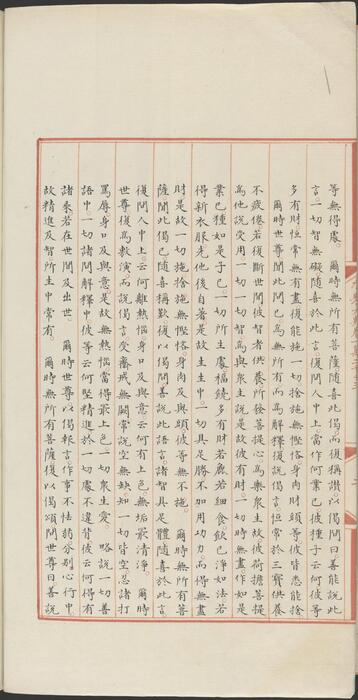 等無得處。　爾時無所有菩薩隨喜此偈而復稱讚以偈問曰善能說此
言。一切智無礙隨喜於此言復問人中上當作何業已彼種子云何彼等
多有財恒常無有盡復能施一切捨施無慳悋身肉財頭等彼皆悉能捨
爾時世尊聞此問已為無所有而為解釋復說偈言恒常於三寶供養
不疲倦若復斷世間彼智者供養所發菩提心為樂眾生故彼荷擔菩提
為他說受用一切一切智為與眾生說是故彼有財。一切時無盡作如是
業已種如是子已。一切所生處福饒多有財若廉若細食。飲已淨如法若
得新衣服先他後自著是故生生中。一切具足勝不加用功力。而得無盡
財是故一切施捨施無慳悋身肉及與頭彼等無不施。　爾時無所有菩
薩聞此偈已隨喜稱歎復以偈問世尊曰善說此語言諸智具足體隨喜於此言
復問人中上。云何離熱惱身口及與意云何有上色無垢最清淨。　爾時
世尊復為教演而說偈言。受齋戒無闕常說空無缺知一切皆空忍諸打
罵辱身口及與意是故無熱惱當得最上色一切眾生愛。　略說一切善
語中一切諸問解釋中彼等云何堅精進於一切處不違背彼云何得有
諸乘若在世間及出世。　爾時世尊以偈報言作事不怯弱分別心行中
故精進及智所生中常有。　爾時無所有菩薩復以偈頌問世尊曰善說